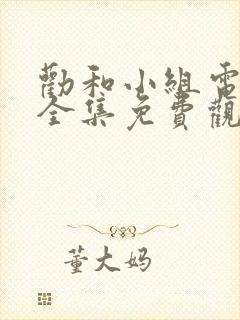 勸和小組電
全集免費觀
董大妈